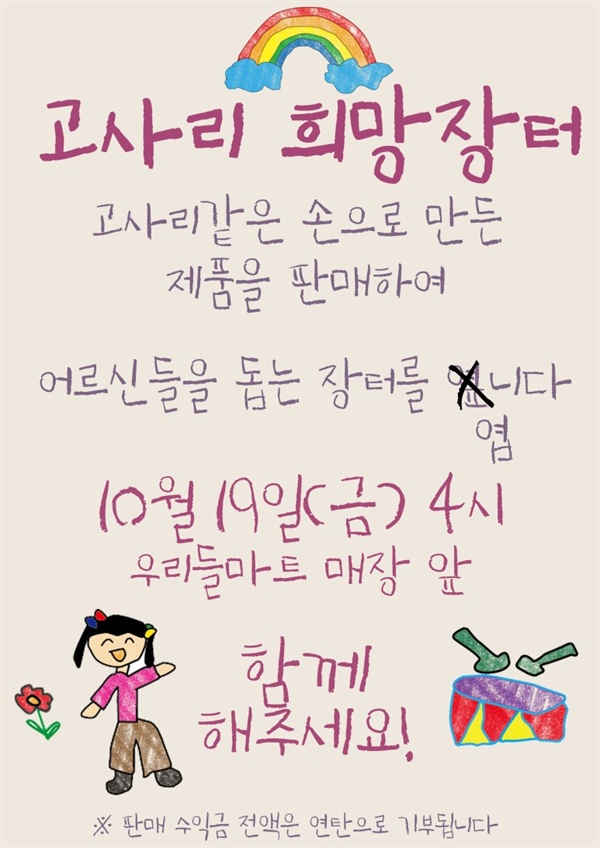 고사리 희망장터
고사리같은 손으로 만든
제품을 판매하여
어르신들을 돕는 장터를 옆니다
엽
10월 19일(금) 4시
우리들마트 매장 앞
함께
해주세요!
※ 판매 수익금 전액은 연탄으로 기부됩니다